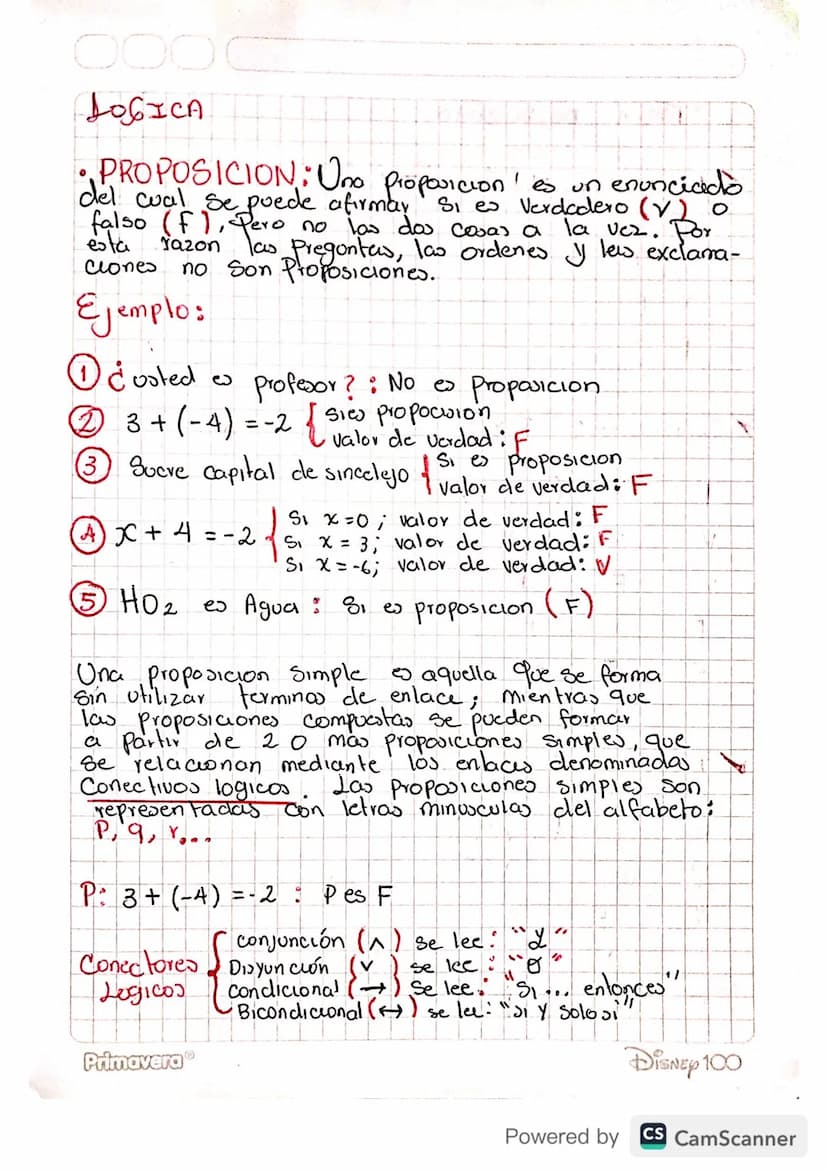 LOGICA
• PROPOSICION: Una proposicion es un enunciciado
del cual se puede afirmar si es Verdadero (V) o
falso (F), Pero no las dos cosas a la vez. Por
esta razon las Preguntas, las ordenes y las exclama-
ciones no son Proposiciones.
Ejemplo:
① ¿usted es profesor? : No es Proposicion
② 3 + (-4) = -2 { Si es propocision
valor de verdad : F
③ Sucre capital de sincelejo { Si es proposicion
valor de verdad: F
④ x + 4 = -2 { Si x = 0 ; valor de verdad: F
Si x = 3; valor de verdad: F
Si x = -6; valor de verdad: V
⑤ HO2 es Agua : Si es proposicion (F)
Una proposicion simple es aquella que se forma
sin utilizar terminos de enlace; mientras que
las proposiciones compuestas se pueden formar
a partir de 2 o mas proposiciones simples, que
se relacionan mediante los enlaces denominados
Conectivos logicos. Las proposiciones simples son
representadas con letras minusculas del alfabeto:
P, q, r...
P: 3 + (-4) = -2 : P es F
Conectores Logicos { conjunción (∧) se lee: "Y"
Disyunción (∨) se lee: "O"
condicional (→) se lee: "Si... entonces"
Bicondicional (↔) se lee: "si y solo si"
Primavera®
Disney 100
Powered by CS CamScanner